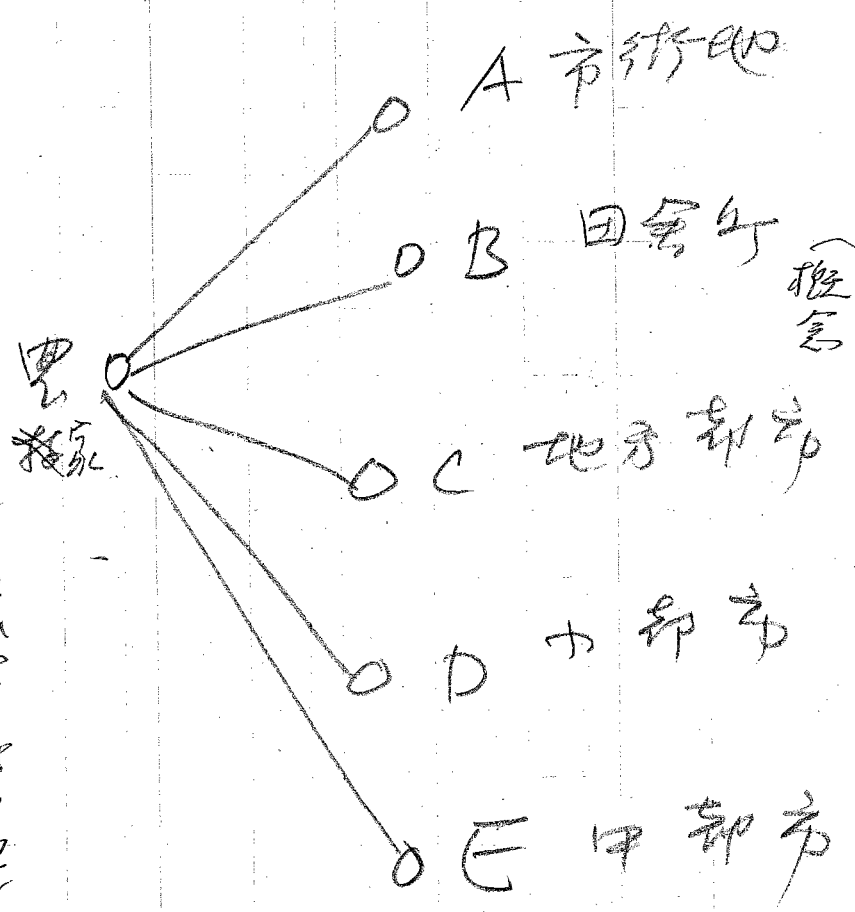 A 市街地
B 田舎
(概念
C 地方都市
D 小都市
E 中都市
家